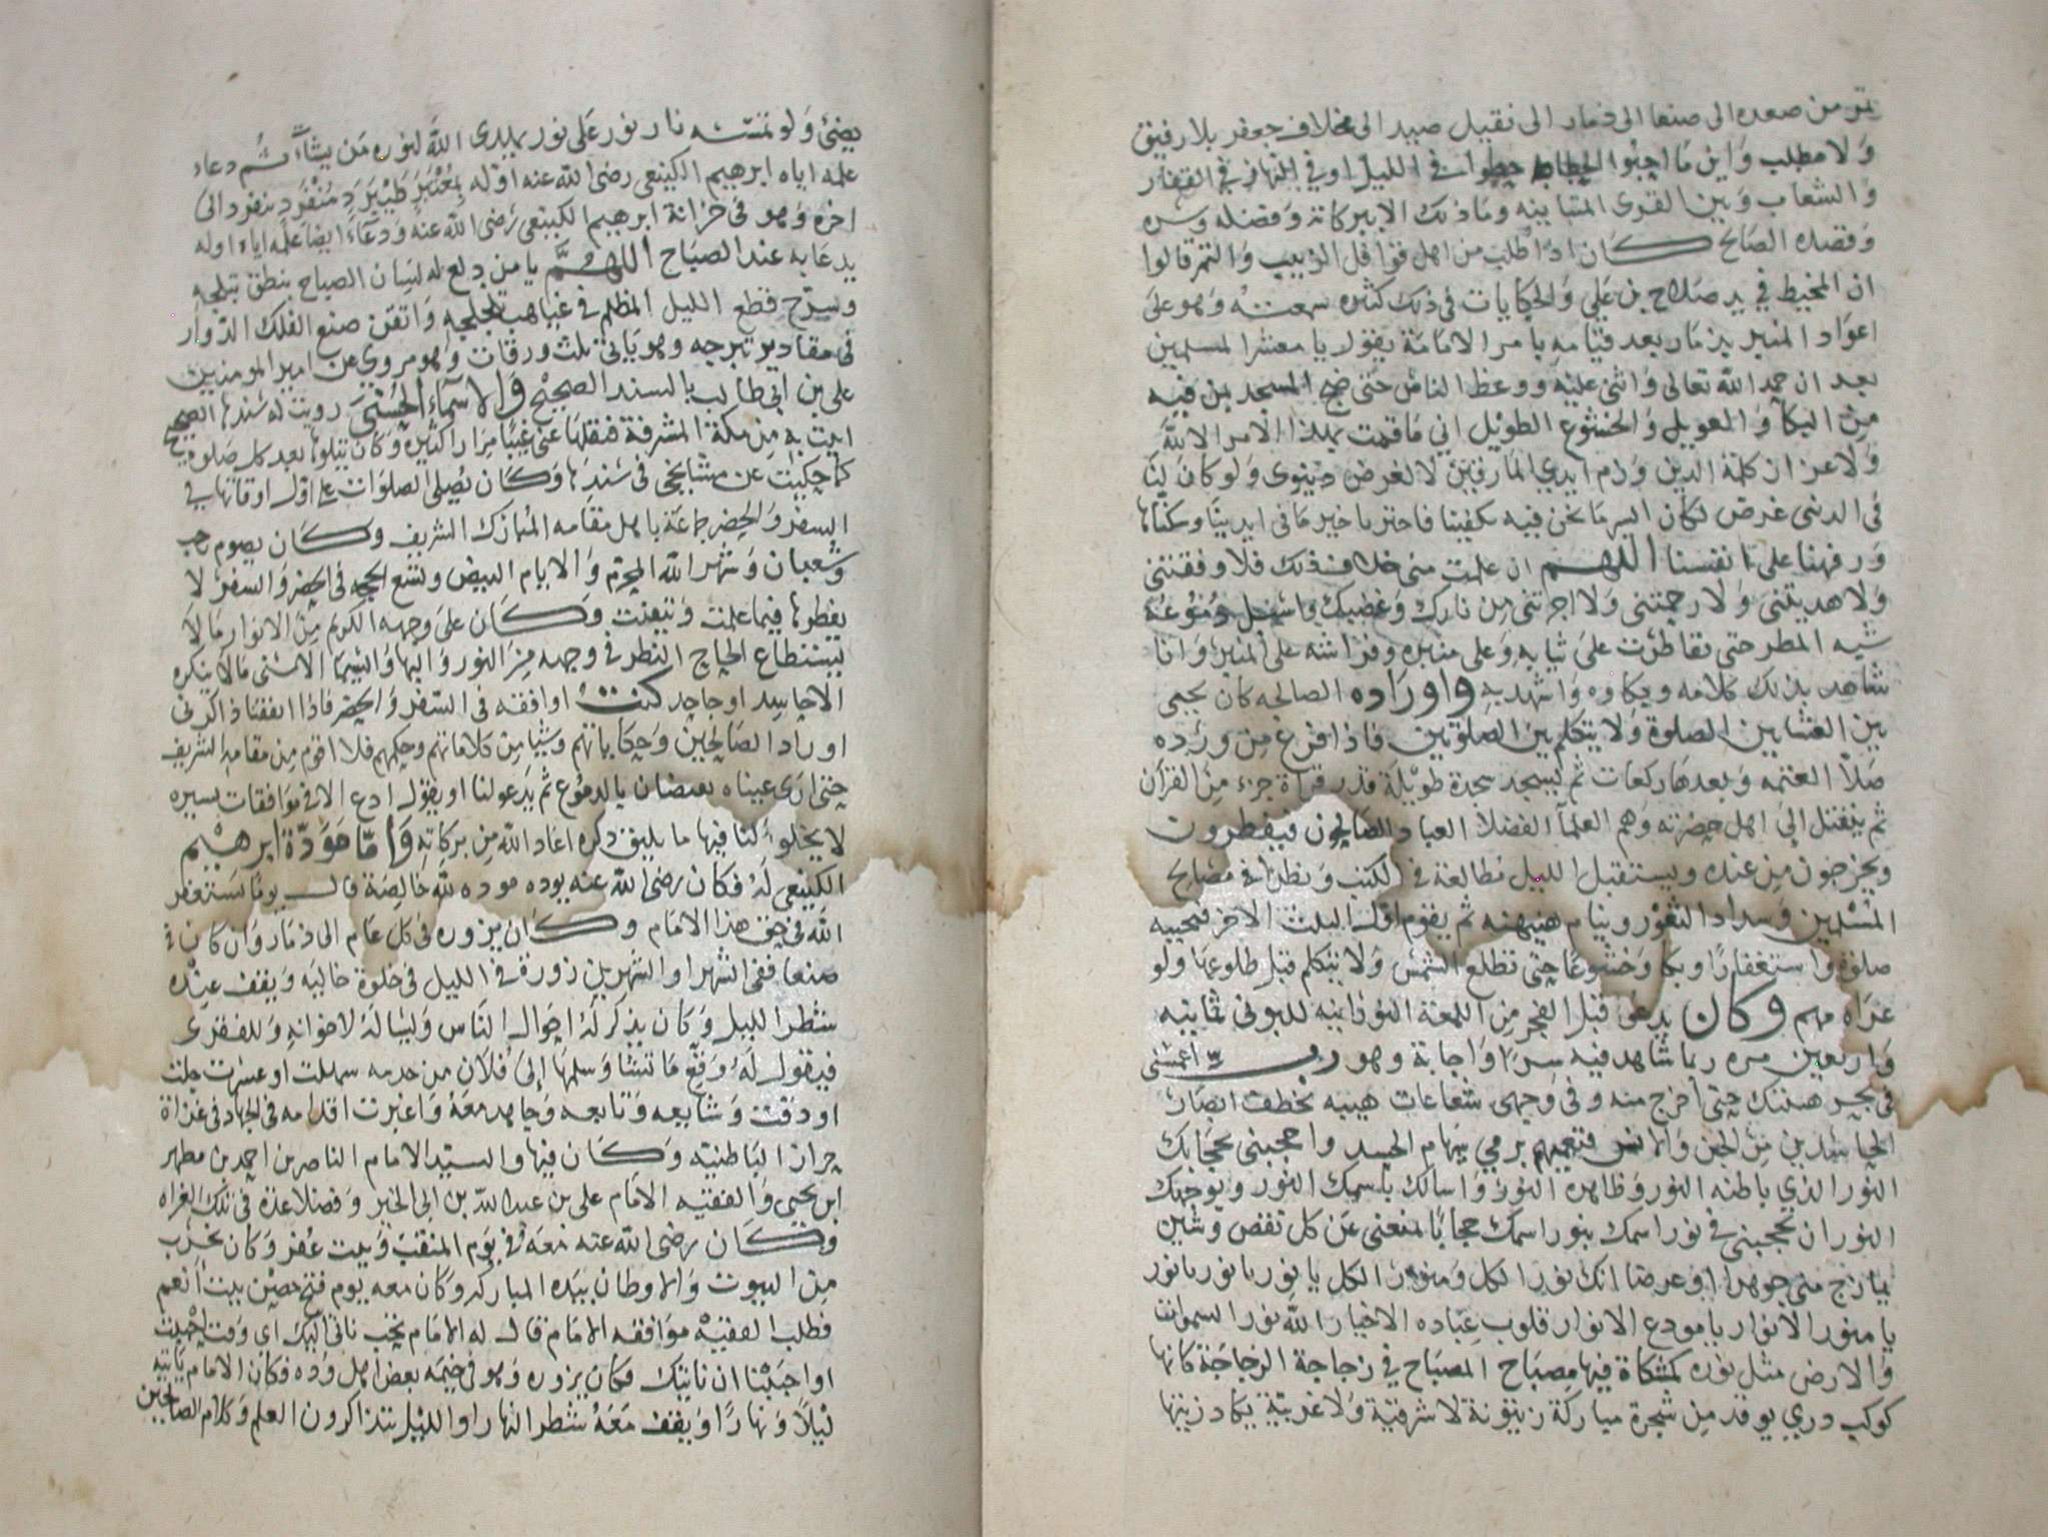 تمر من صعده الى صنعا الى ذمار الى نقيل صيد الى مخلاف جعفر بلا رفيق
ولا مطلب واين ما اجبوا الحطاط حطوا في الليل او في النهار في القفار
والشعاب وبين القوى المتباينه وما ذلك الا ببركاته وفضله وسره
وقصده الصالح كان اذا طلب من اهل قوافل الزبيب والتمر قالوا
ان المخيط في يد صلاح بن علي والحكايات في ذلك كثيره سمعته وهو على
اعواد المنبر بذمار بعد قيامه بامر الامامة يقول يا معشر المسلمين
بعد ان حمد الله تعالى واثنى عليه ووعظ الناس حتى ضج المسجد بمن فيه
من البكا والعويل والخشوع الطويل اني ما قمت بهذا الامر الا لله
ولاعزاز كلمة الدين وزم ايدي المارقين لا لغرض دنيوى ولو كان لنا
فى الدنى غرض لكان اليسر ما نحن فيه يكفينا فاخترنا خير ما في ايدينا وسكناها
ورفهنا على انفسنا اللهم ان علمت منى خلاف ذلك فلا وفقتنى
ولا هديتنى ولا رحمتنى ولا اجرتنى من نارك وغضبك واسبل دموعه
شبه المطر حتى تقاطرت على ثيابه وعلى منابره وفراشه على المنبر وانا
شاهد بذلك كلامه وبكاوه واشهد به واوراده الصالحه كان يحيى
بين العشايين الصلوة ولا يتكلم بين الصلوتين فاذا فرغ من ورده
صلا العتمه وبعدها ركعات ثم يسجد سجدة طويلة قدر قراة جزء من القرآن
ثم ينفتل الى اهل حضرته وهم العلمآ الفضلا العباد الصالحون فيفطرون
ويخرجون من عنده ويستقبل الليل مطالعة في الكتب ونظرا في مصالح
المسلمين وسداد الثغور وينام هنيهنه ثم يقوم اول الثلث الاخر فيحييه
صلوة واستغفارًا وبكا وخشوعا حتى تطلع الشمس ولا يتكلم قبل طلوعها ولو
عراه مهم وكان يدعى قبل الفجر من اللمعة النورانيه للبونى ثمانيه
واربعين مره ربما شاهد فيه سرًا واجابة وهو رب اغمسنى
في بحر هيبتك حتى اخرج منه وفى وجهى شعاعات هيبه تخطف ابصار
الحاسدين من الجن والانس فتعميهم برمي سهام الحسد واحجبنى بحجابك
النور الذي باطنه النور وظاهره النور واسالك باسمك النور وبوجهك
النور ان تحجبني في نور اسمك بنور اسمك حجابًا يمنعنى عن كل نقص وشين
يمازج منى جوهرا او عرضا انك نور الكل ومنور الكل يا نور يا نور يا نور
يا منور الانوار يا مودع الانوار قلوب عباده الاخيار الله نور السموات
والارض مثل نوره كمشكاة فيها مصباح المصباح في زجاجة الزجاجة كانها
كوكب دري يوقد من شجرة مباركة زيتونة لا شرقية ولا غربية يكاد زيتها
يضئ ولو تمسسه نار نور على نور يهدى الله لنوره من يشآء ثم دعاء
علمه اياه ابرهيم الكينعى رضى الله عنه اوله
اخره وهو فى خزانة ابرهيم الكينعى رضى الله عنه ودعاءً ايضا علمه اياه اوله
يدعا به عند الصباح اللهم يا من دلع له لسان الصباح بنطق تبلجه
وسرح قطع الليل المظلم في غياهب تلجلجه واتقن صنع الفلك الدوار
فى مقادير تبرجه وهو ياتى ثلث ورقات وهو مروي عن امير المومنين
على بن ابى طالب بالسند الصحيح والاسمآء الحسنى رويت له سندها الصحيح
اتيت به من مكة المشرفة فنقلها عنى غيبًا مرارا كثيره وكان يتلوها بعد كل صلوة
كما حكيت عن مشايخى في سندها وكان يصلى الصلوات على اول اوقاتها في
السفر والحضر جماعة باهل مقامه المبارك الشريف وكان يصوم رجب
وشعبان وشهر الله المحرم والايام البيض وتسع الحجه فى الحضر والسفر لا
يفطرها فيما علمت وتيقنت وكان على وجهه الكريم من الانوار مالا
يستطاع الحاج النظر في وجهه من النور والبها والسيما الاسنى مالا ينكره
الا حاسد او جاحد كنت اوافقه فى السفر والحضر فاذا اتفقنا ذاكرنى
اوراد الصالحين وحكاياتهم وشيا من كلاماتهم وحكمهم فلا اقوم من مقامه الشريف
حتى ارى عيناه تفيضان بالدموع ثم يدعو لنا او يقول ادع الا في موافقات يسيره
لا يخلوا كنا فيها ما يليق ذكره اعاد الله من بركاته واما مودة ابرهيم
الكينعى له فكان رضى الله عنه يوده موده لله خالصة قال يومًا نستغفر
الله فى حق هذا الامام وكان يزوره فى كل عام الى ذمار وان كان في
صنعا ففى الشهر او الشهرين زورة في الليل فى خلوة خاليه ويقف عنده
شطر الليل وكان يذكر له احوال الناس ويسال له لاخوانه وللفقرى
فيقول له وقع ما تشا وسلمها الى فلان من خدمه سهلت او عسرت جلت
او دقت وشايعه وتابعه وجاهد معه واغبرت اقدامه فى الجهاد فى غزاة
حراز الباطنيه وكان فيها والسيد الامام الناصر بن احمد بن مطهر
ابن يحيى والفقيه الامام على بن عبد الله بن ابى الخير وفضلا عدة فى تلك الغزاه
وكان رضى الله عنه معه في يوم المنقب وبيت عفر وكان يخرب
من البيوت والاوطان بيده المباركه وكان معه يوم فتح حصن بيت انعم
فطلب الفقيه موافقه الامام قال له الامام يجب ناتى اليك اى وقت احببت
او احببنا ان ناتيك فكان يزوره وهو فى خيمه بعض اهل وده فكان الامام ياتيه
ليلاً ونهارًا ويقف معه شطر النهار او الليل يتذاكرون العلم وكلام الصالحين